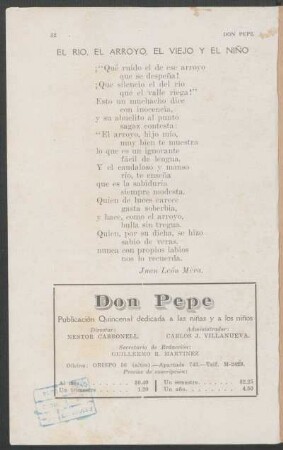 DON PEPE
EL RIO, EL ARROYO, EL VIEJO Y EL NIÑO
¡"Qué ruido el de ese arroyo
que se despeña!
¡Que silencio el del río
que el valle riega!"
Esto un muchacho dice
con inocencia,
y su abuelito al punto
sagaz contesta:
"El arroyo, hijo mío,
muy bien te muestra
lo que es un ignorante
fácil de lengua.
Y el caudaloso y manso
río, te enseña
que es la sabiduría
siempre modesta.
Quien de luces carece
gasta soberbia,
y hace, como el arroyo,
bulla sin tregua.
Quien, por su dicha, se hizo
sabio de veras,
nunca con propios labios
nos lo recuerda.
Juan León Mera.
Don Pepe
Publicación Quincenal dedicada a las niñas y a los niños
Director:
NESTOR CARBONELL
Administrador:
CARLOS J. VILLANUEVA.
Secretario de Redacción:
GUILLERMO R. MARTINEZ
Oficina: CRESPO (altos).—Apartado Telf.
Precios de suscripción:
Un semestre
Un trimestre Un año